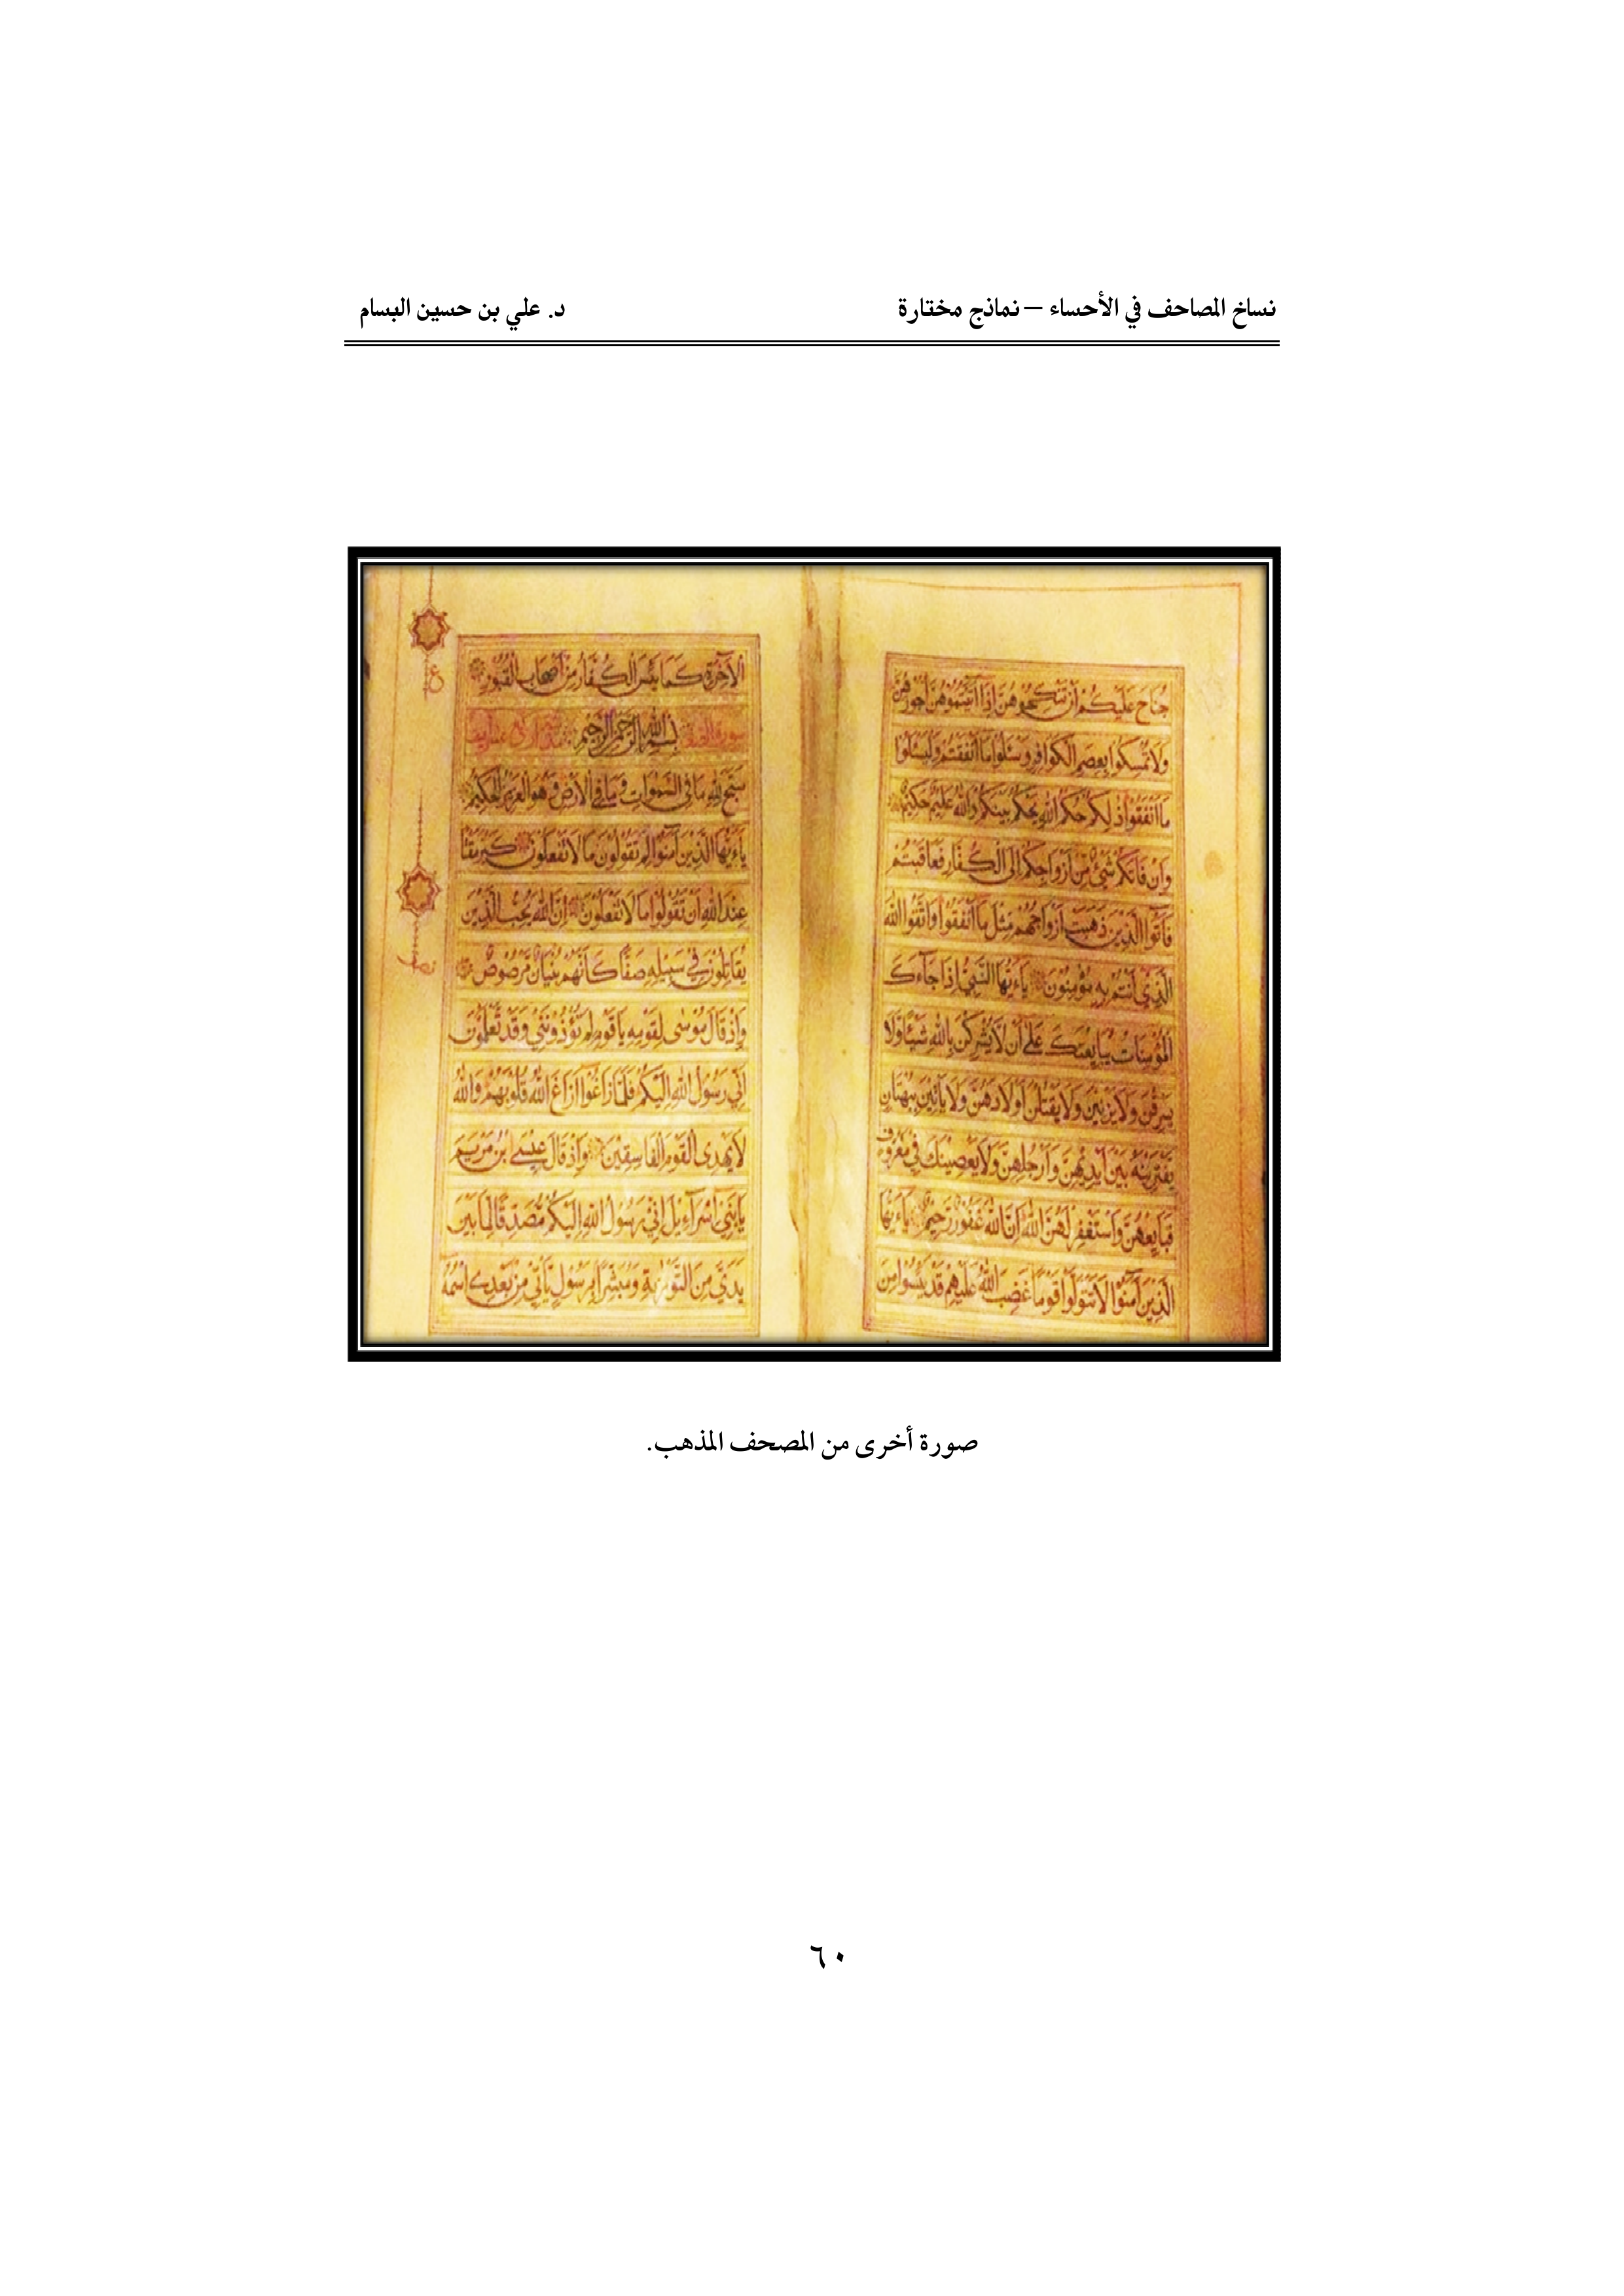 نساخ المصاحف في الأحساء – نماذج مختارة
د. علي بن حسين البسام
جُنَاحَ عَلَيْكُمْ أَنْ تَنْكِحُوهُنَّ إِذَا آتَيْتُمُوهُنَّ أُجُورَهُنَّ
وَلَا تُمْسِكُوا بِعِصَمِ الْكَوَافِرِ وَسْئَلُوا مَا أَنْفَقْتُمْ وَلْيَسْئَلُوا
مَا أَنْفَقُوا ذَٰلِكُمْ حُكْمُ اللَّهِ يَحْكُمُ بَيْنَكُمْ وَاللَّهُ عَلِيمٌ حَكِيمٌ
وَإِنْ فَاتَكُمْ شَيْءٌ مِنْ أَزْوَاجِكُمْ إِلَى الْكُفَّارِ فَعَاقَبْتُمْ
فَآتُوا الَّذِينَ ذَهَبَتْ أَزْوَاجُهُمْ مِثْلَ مَا أَنْفَقُوا وَاتَّقُوا اللَّهَ
الَّذِي أَنْتُمْ بِهِ مُؤْمِنُونَ يَاءَيُّهَا النَّبِيُّ إِذَا جَآءَكَ
الْمُؤْمِنَاتُ يُبَايِعْنَكَ عَلَى أَنْ لَا يُشْرِكْنَ بِاللَّهِ شَيْئًا وَلَا
يَسْرِقْنَ وَلَا يَزْنِينَ وَلَا يَقْتُلْنَ أَوْلَادَهُنَّ وَلَا يَأْتِينَ بِبُهْتَانٍ
يَفْتَرِينَهُ بَيْنَ أَيْدِيهِنَّ وَأَرْجُلِهِنَّ وَلَا يَعْصِينَكَ فِي مَعْرُوفٍ
فَبَايِعْهُنَّ وَاسْتَغْفِرْ لَهُنَّ اللَّهَ إِنَّ اللَّهَ غَفُورٌ رَحِيمٌ يَاءَيُّهَا
الَّذِينَ آمَنُوا لَا تَتَوَلَّوْا قَوْمًا غَضِبَ اللَّهُ عَلَيْهِمْ قَدْ يَئِسُوا مِنَ
الْآخِرَةِ كَمَا يَئِسَ الْكُفَّارُ مِنْ أَصْحَابِ الْقُبُورِ
سورة الصف بِسْمِ اللَّهِ الرَّحْمَٰنِ الرَّحِيمِ
سَبَّحَ لِلَّهِ مَا فِي السَّمَٰوَاتِ وَمَا فِي الْأَرْضِ وَهُوَ الْعَزِيزُ الْحَكِيمُ
يَاءَيُّهَا الَّذِينَ آمَنُوا لِمَ تَقُولُونَ مَا لَا تَفْعَلُونَ كَبُرَ مَقْتًا
عِنْدَ اللَّهِ أَنْ تَقُولُوا مَا لَا تَفْعَلُونَ إِنَّ اللَّهَ يُحِبُّ الَّذِينَ
يُقَاتِلُونَ فِي سَبِيلِهِ صَفًّا كَأَنَّهُمْ بُنْيَانٌ مَرْصُوصٌ
وَإِذْ قَالَ مُوسَى لِقَوْمِهِ يَا قَوْمِ لِمَ تُؤْذُونَنِي وَقَدْ تَعْلَمُونَ
أَنِّي رَسُولُ اللَّهِ إِلَيْكُمْ فَلَمَّا زَاغُوا أَزَاغَ اللَّهُ قُلُوبَهُمْ وَاللَّهُ
لَا يَهْدِي الْقَوْمَ الْفَاسِقِينَ وَإِذْ قَالَ عِيسَى بْنُ مَرْيَمَ
يَا بَنِي إِسْرَآءِيلَ إِنِّي رَسُولُ اللَّهِ إِلَيْكُمْ مُصَدِّقًا لِمَا بَيْنَ
يَدَيَّ مِنَ التَّوْرَٰيةِ وَمُبَشِّرًا بِرَسُولٍ يَأْتِي مِنْ بَعْدِي اسْمُهُ
ع
نصف
صورة أخرى من المصحف المذهب.
٦٠